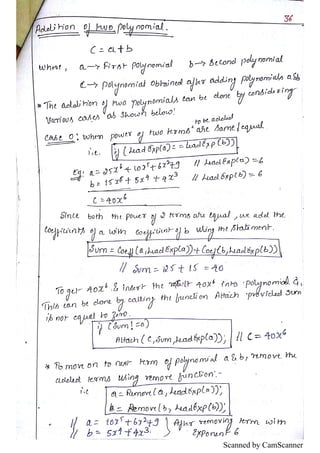 36
Addition of two polynomial.
C = a + b
where, a → First Polynomial b → Second polynomial
C → polynomial Obtained after adding polynomials a & b
* The addition of two Polynomials can be done by considering
Various cases as shown below:
Case 0: When power of two terms to be added are same/equal
i.e. if (LeadExp(a) == LeadExp(b))
Eg: a = 25x⁶ + 10x⁵ + 6x² + 9 // LeadExp(a) = 6
b = 15x⁶ + 5x⁴ + 4x³ // LeadExp(b) = 6
C = 40x⁶
Since both the power of 2 terms are equal, we add the
Coefficients of a with Coefficient of b using the statement.
Sum = Coef(a, LeadExp(a)) + Coef(b, LeadExp(b))
// Sum = 25 + 15 = 40
To get 40x⁶ & insert the result 40x⁶ into polynomial C,
This can be done by calling the function Attach provided sum
is not equal to zero.
if (Sum != 0)
Attach (C, Sum, LeadExp(a)); // C = 40x⁶
* To move on to next term of polynomial a & b, remove the
added terms using remove function.
i.e a = Remove(a, LeadExp(a));
b = Remove(b, LeadExp(b));
// a = 10x⁵ + 6x² + 9 After removing term with
// b = 5x⁴ + 4x³ Exponent 6
Scanned by CamScanner